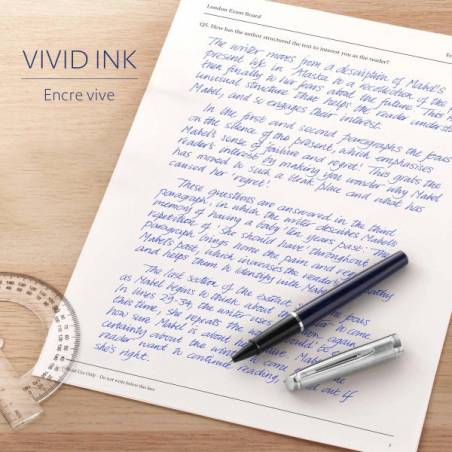 VIVID INK
Encre vive
London Exam Board
Q5. How has the author structured the text to interest you as the reader?
The writer moves from a description of Mabel's
present life in Alaska to a recollection of the
then finally to her fears about the future. This
unusual structure that helps the reader understand
Mabel, and so engages their interest.
In the first and second paragraphs the focus
on the silence of the present, which emphasises
Mabel's sense of 'failure and regret'. This grabs the
reader's interest by making you wonder why Mabel
has moved to such a bleak place and what has
caused her 'regret'.
These questions are answered in the third
paragraph, in which the writer describes Mabel's
memory of having a baby 'ten years past'. The
repetition of 'she should have' throughout
paragraph brings home the pain and
Mabel's past, which increases the reader's sympathy
and helps them to identify with Mabel
The last section of the extract
as Mabel begins to think about
In lines 29-34, the writer uses
this time, she repeats the
how sure Mabel is
certainty about the winter to come
reader want to continue reading, out if
she's right.
Use Only - Do not write below this line